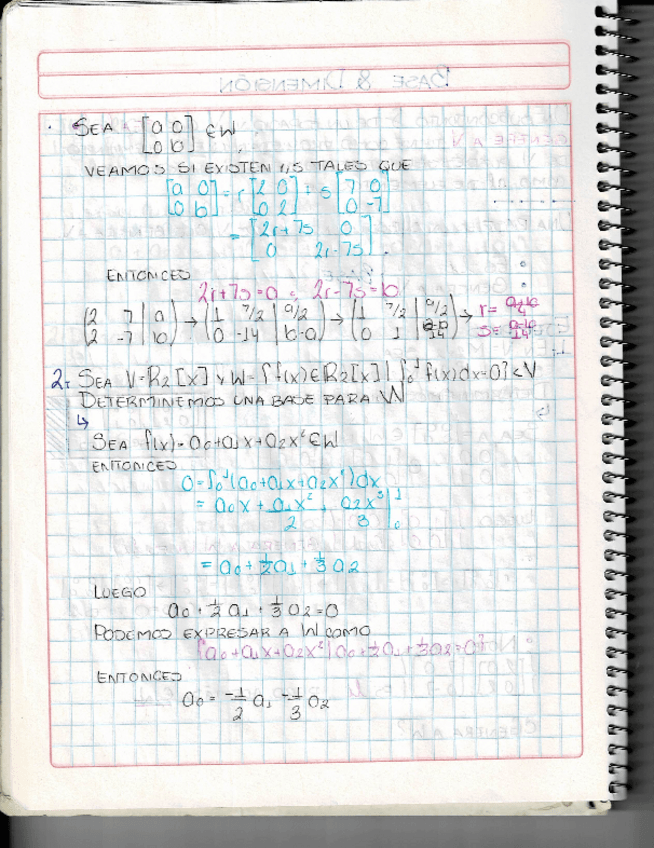 • SEA [a 0; 0 b] ∈ W,
VEAMOS SI EXISTEN r,s TALES QUE
[a 0; 0 b] = r[2 0; 0 2] + s[7 0; 0 -7]
= [2r+7s 0; 0 2r-7s].
ENTONCES
2r+7s=a ; 2r-7s=b
(2 7 | a; 2 -7 | b) → (1 7/2 | a/2; 0 -14 | b-a) → (1 7/2 | a/2; 0 1 | a-b/14) → r= a+b/4 s= a-b/14
2. SEA V=R2[x] y W={f(x)∈R2[x] | ∫₀¹ f(x)dx=0} < V
DETERMINEMOS UNA BASE PARA W
↳
SEA f(x)=a0+a1x+a2x² ∈ W
ENTONCES
0=∫₀¹(a0+a1x+a2x²)dx
= a0x + a1x²/2 + a2x³/3 |₀¹
= a0+½a1+⅓a2
LUEGO
a0+½a1+⅓a2=0
PODEMOS EXPRESAR A W COMO
{a0+a1x+a2x² | a0+½a1+⅓a2=0}
ENTONCES
a0= -1/2 a1 -1/3 a2